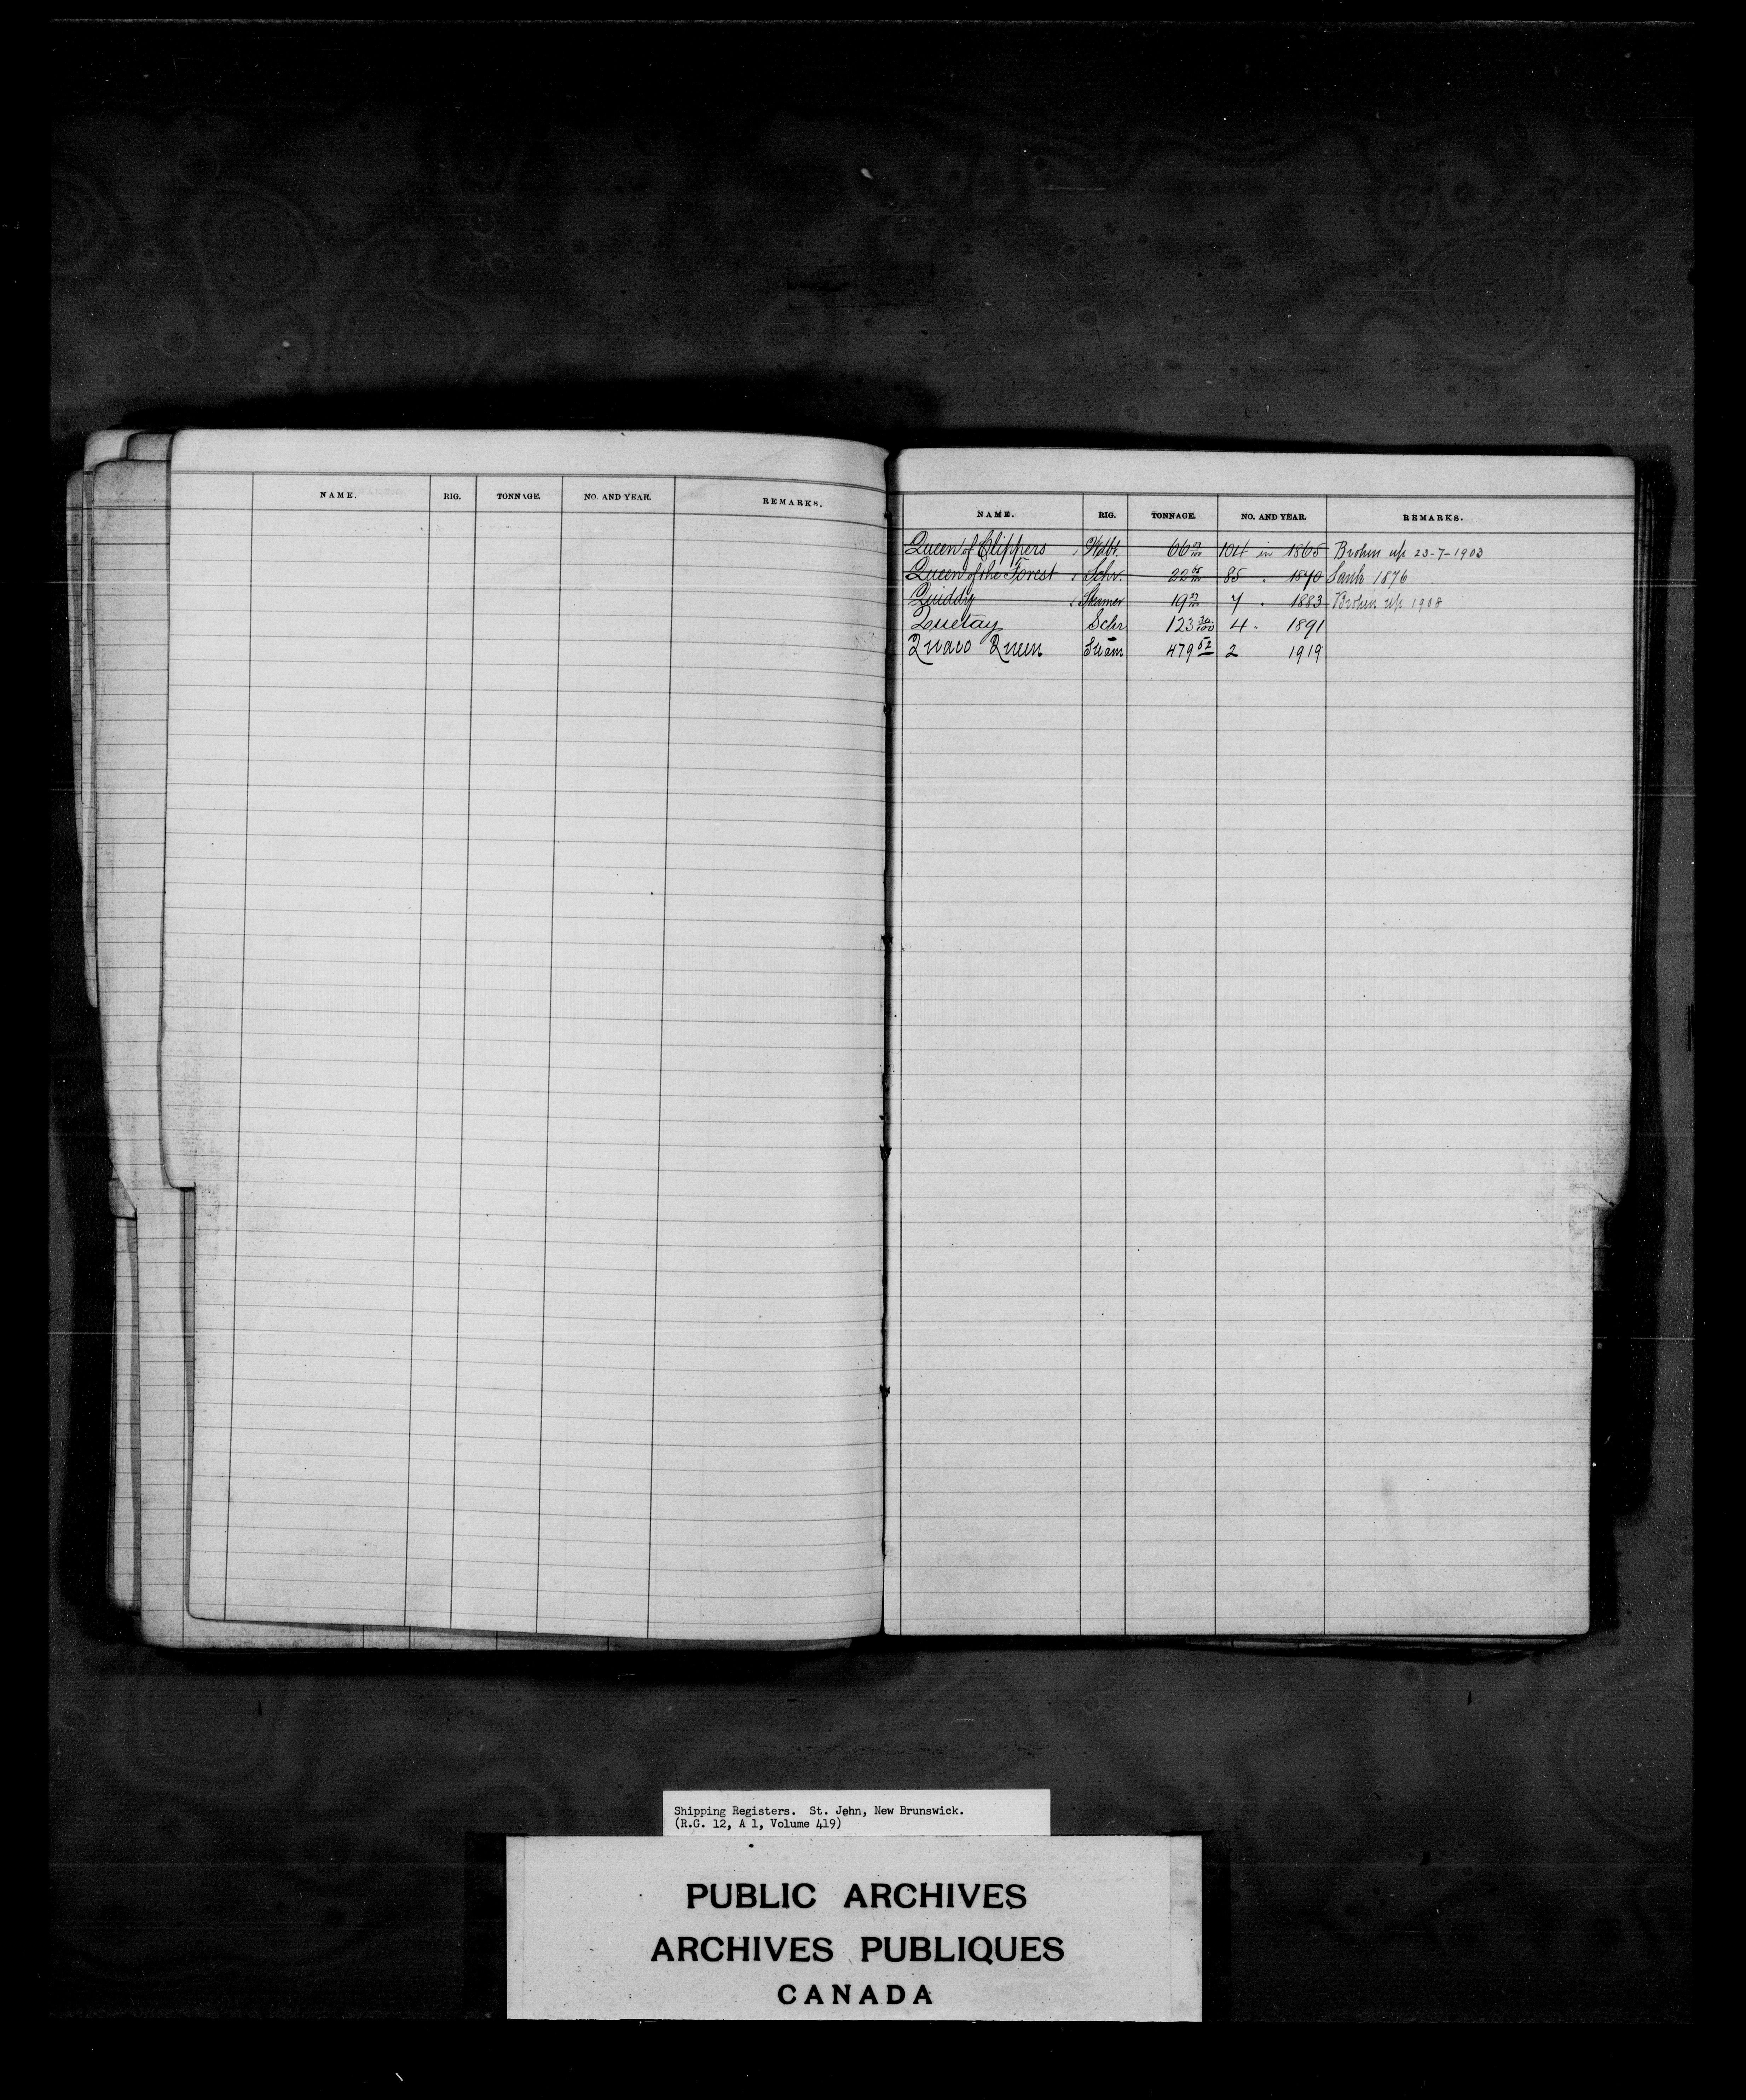 NAME. RIG. TONNAGE. NO. AND YEAR. REMARKS.
NAME. RIG. TONNAGE. NO. AND YEAR. REMARKS.
Queen of Clippers 104 in 1865 Broken up 23-7-1903
Queen of the Forest Schr. 85 . 1870 Sank 1876
Quiddy Steamer 7 . 1883 Broken up 1908
Quetay Schr 123 30/100 4 . 1891
Quaco Queen Steam 479 52 2 1919
Shipping Registers. St. John, New Brunswick.
(R.G. 12, A 1, Volume 419)
PUBLIC ARCHIVES
ARCHIVES PUBLIQUES
CANADA